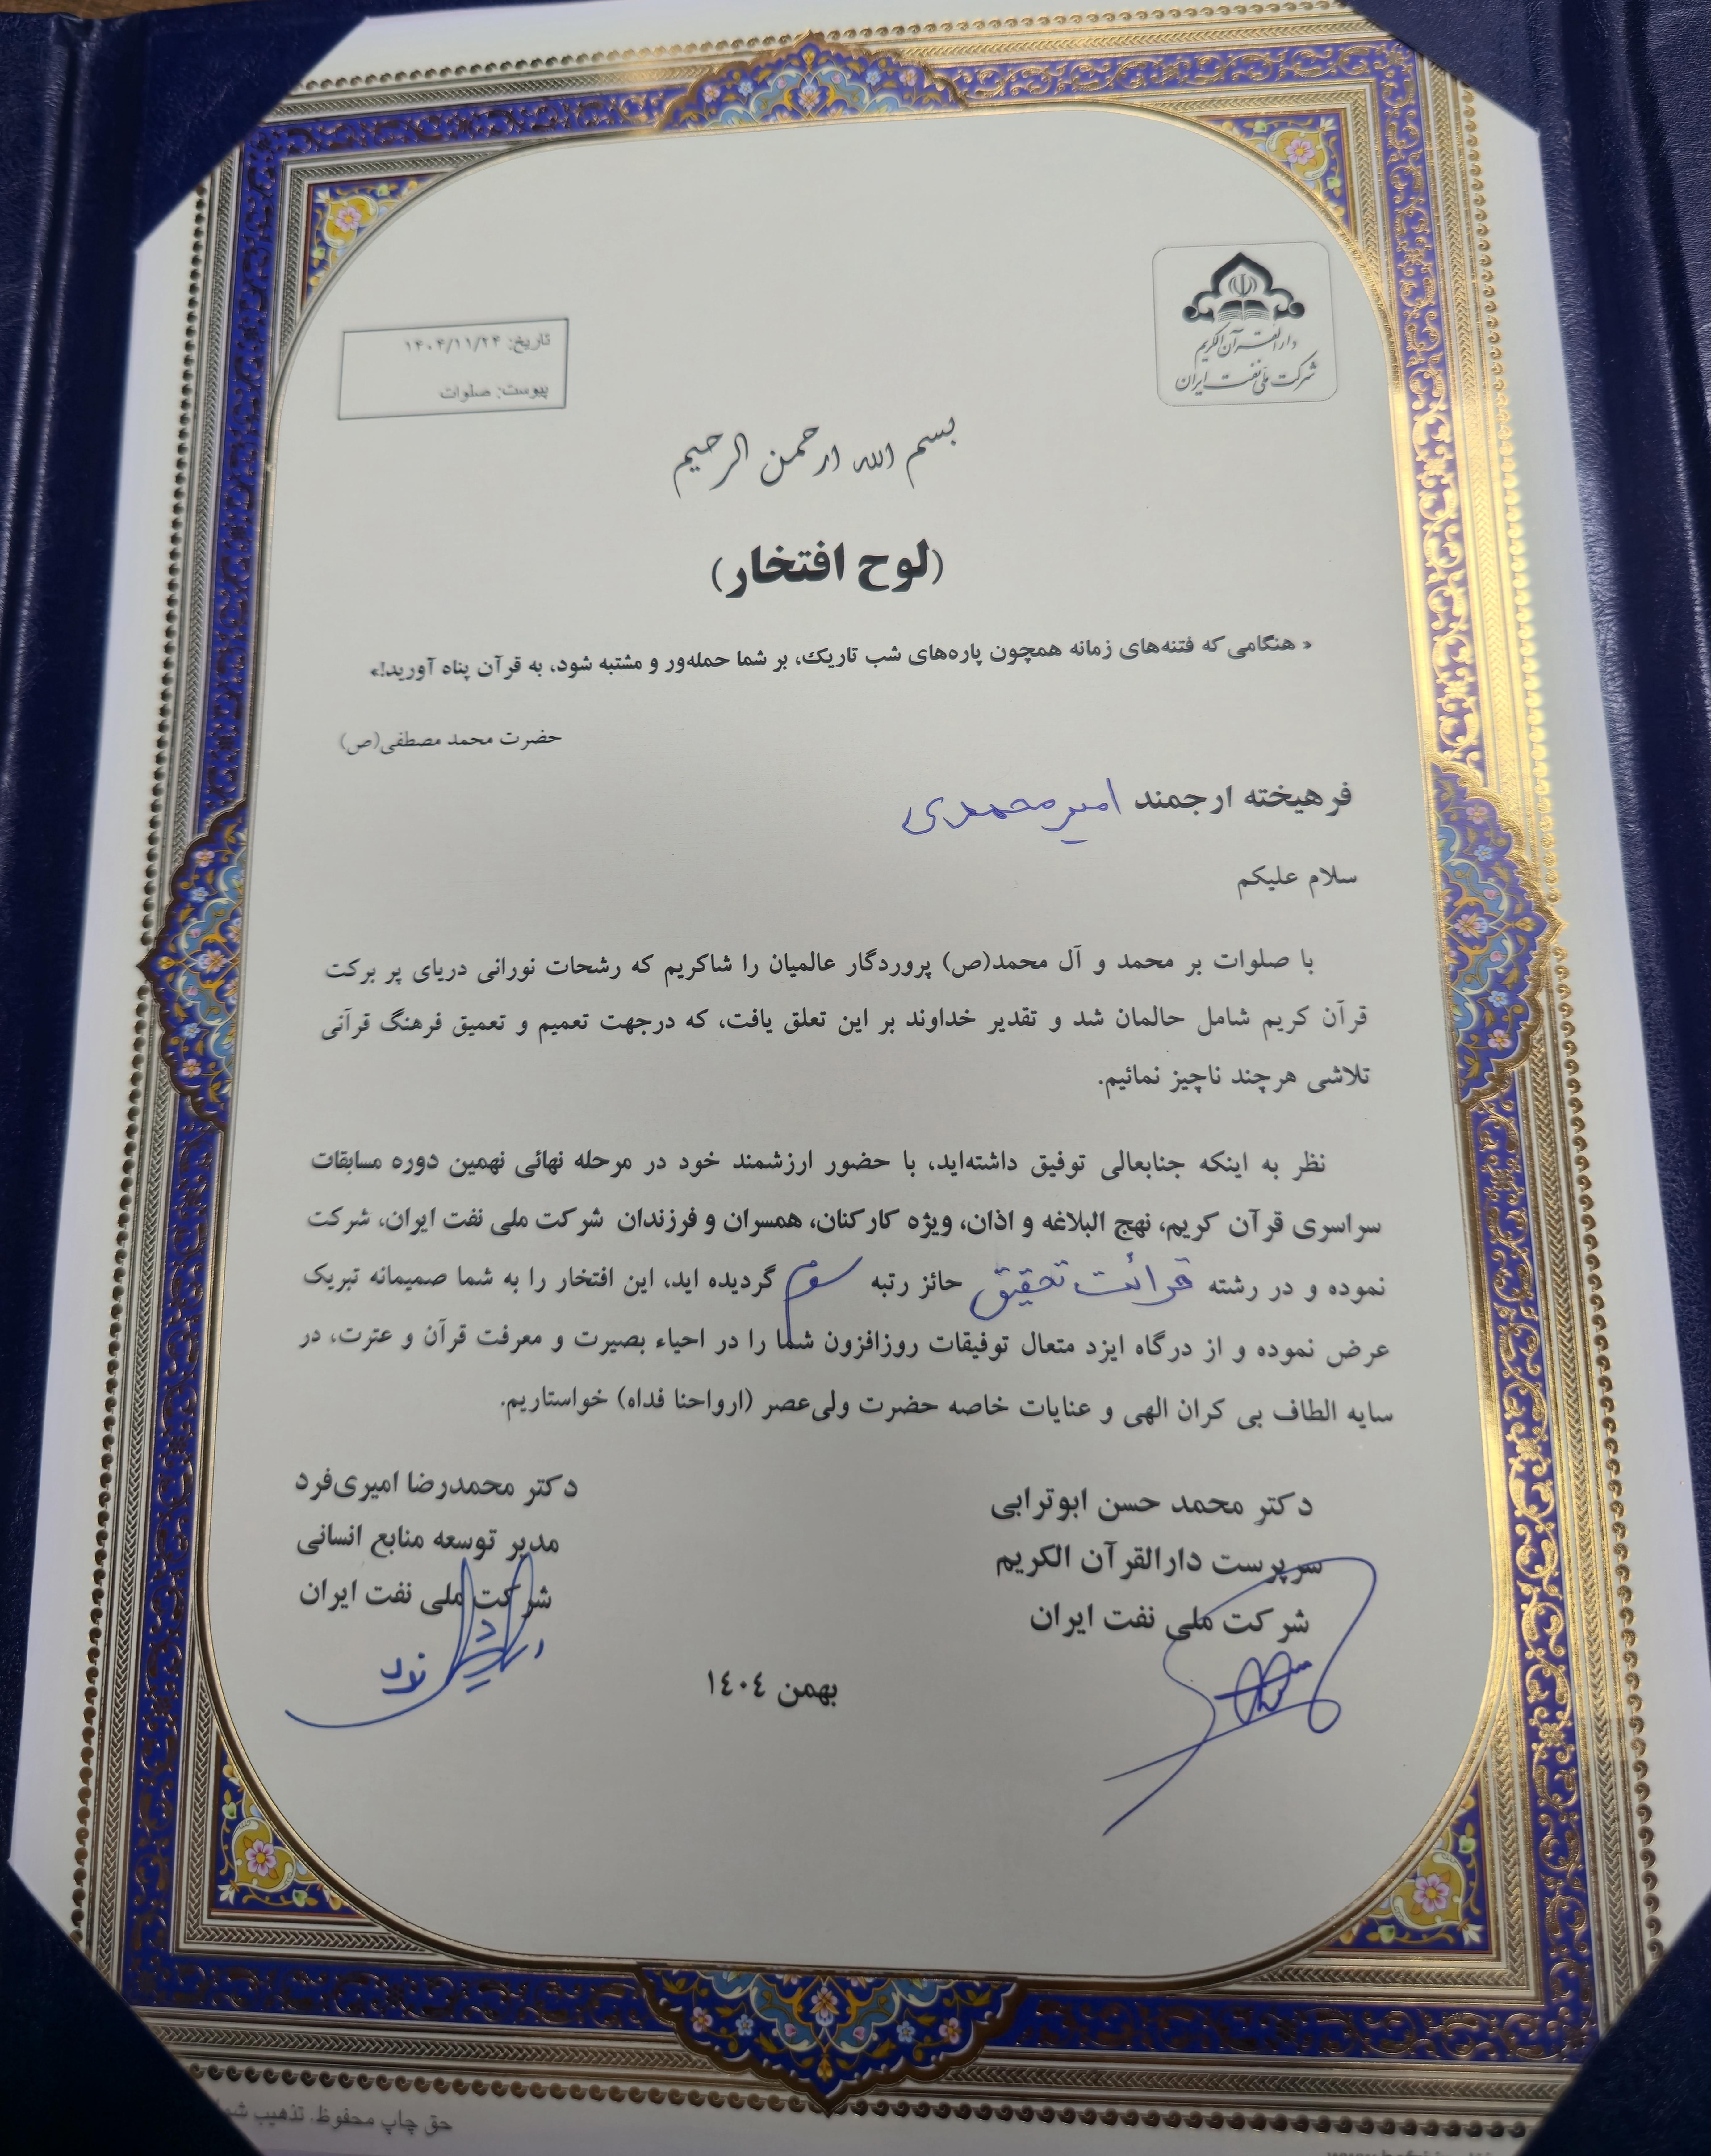 دارالقرآن الکریم
شرکت ملی نفت ایران
تاریخ: ۱۴۰۴/۱۱/۲۴
پیوست: صلوات
بسم الله ارحمن الرحیم
(لوح افتخار)
« هنگامی که فتنه‌های زمانه همچون پاره‌های شب تاریک، بر شما حمله‌ور و مشتبه شود، به قرآن پناه آورید!»
حضرت محمد مصطفی(ص)
فرهیخته ارجمند امیر محمدی
سلام علیکم
با صلوات بر محمد و آل محمد(ص) پروردگار عالمیان را شاکریم که رشحات نورانی دریای پر برکت
قرآن کریم شامل حالمان شد و تقدیر خداوند بر این تعلق یافت، که درجهت تعمیم و تعمیق فرهنگ قرآنی
تلاشی هرچند ناچیز نمائیم.
نظر به اینکه جنابعالی توفیق داشته‌اید، با حضور ارزشمند خود در مرحله نهائی نهمین دوره مسابقات
سراسری قرآن کریم، نهج البلاغه و اذان، ویژه کارکنان، همسران و فرزندان شرکت ملی نفت ایران، شرکت
نموده و در رشته قرائت تحقیق حائز رتبه سوم گردیده اید، این افتخار را به شما صمیمانه تبریک
عرض نموده و از درگاه ایزد متعال توفیقات روزافزون شما را در احیاء بصیرت و معرفت قرآن و عترت، در
سایه الطاف بی کران الهی و عنایات خاصه حضرت ولی‌عصر (ارواحنا فداه) خواستاریم.
دکتر محمد حسن ابوترابی
سرپرست دارالقرآن الکریم
شرکت ملی نفت ایران
دکتر محمدرضا امیری‌فرد
مدیر توسعه منابع انسانی
شرکت ملی نفت ایران
بهمن ١٤٠٤
حق چاپ محفوظ. تذهیب